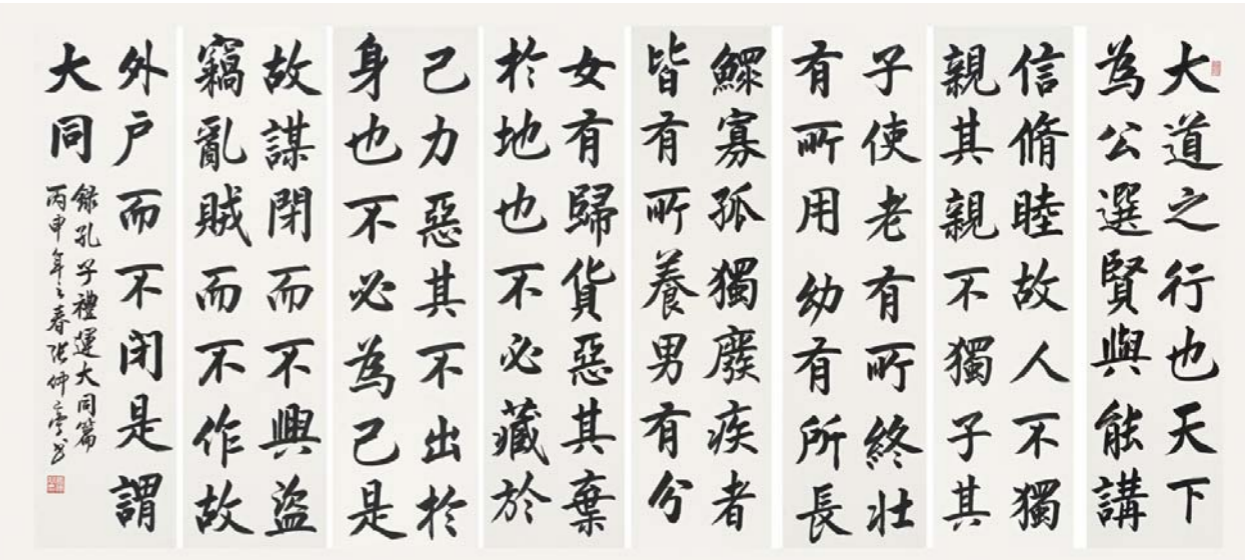 大道之行也天下
為公選賢與能講
信脩睦故人不獨
親其親不獨子其
子使老有所終壯
有所用幼有所長
鰥寡孤獨廢疾者
皆有所養男有分
女有歸貨惡其棄
於地也不必藏於
己力惡其不出於
身也不必為己是
故謀閉而不興盜
竊亂賊而不作故
外户而不闭是謂
大同
錄孔子禮運大同篇
丙申年之春张仲亭书